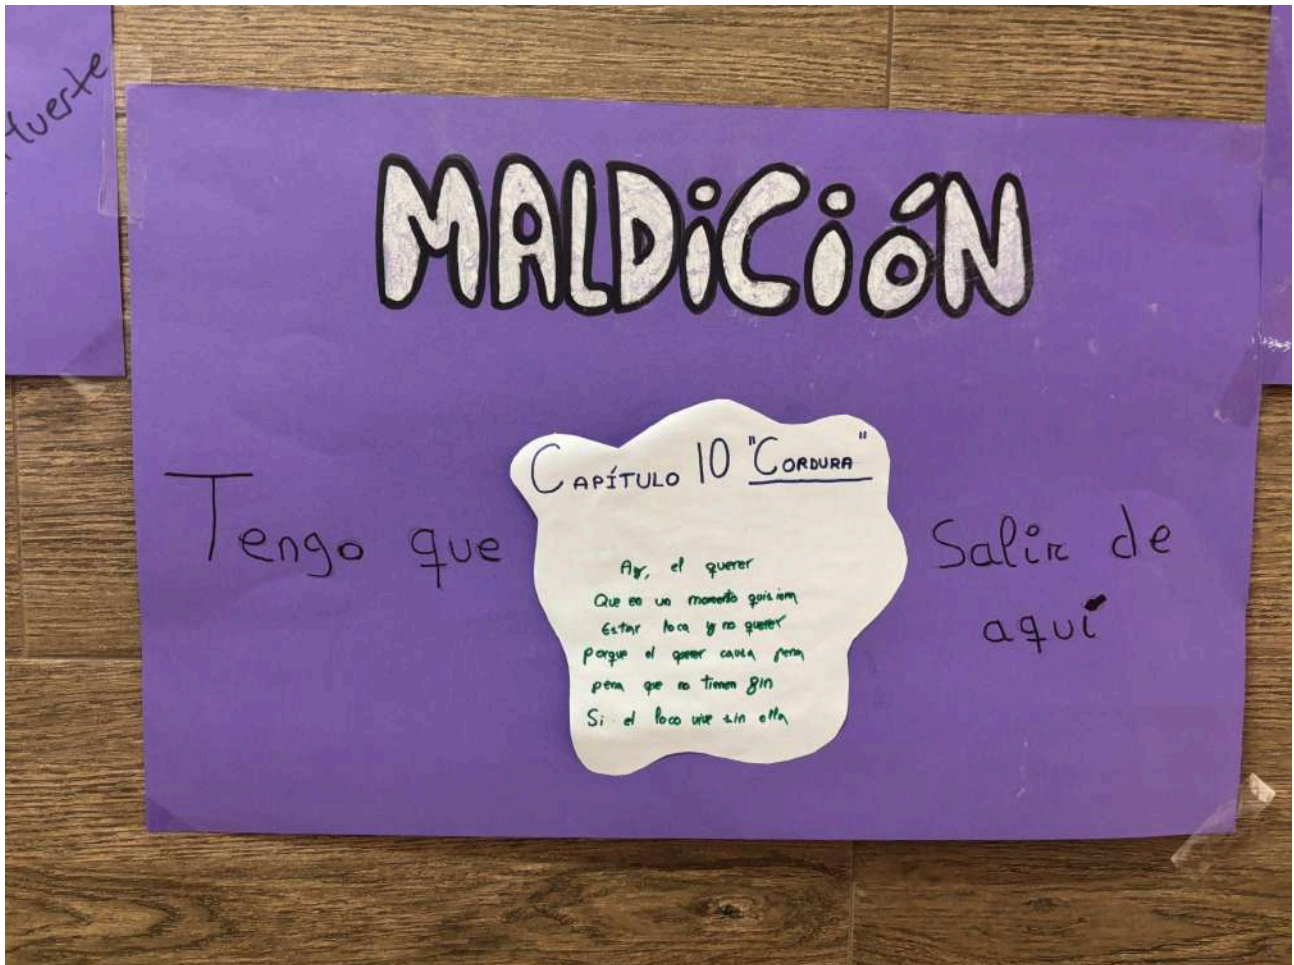 Muerte
MALDiCióN
Tengo que
CAPÍTULO 10 "CORDURA"
Ay, el querer
Que en un momento quisiera
Estar loca y no querer
porque el querer causa pena
pena que no tienen fin
Si el loco vive sin ella
Salir de
aquí